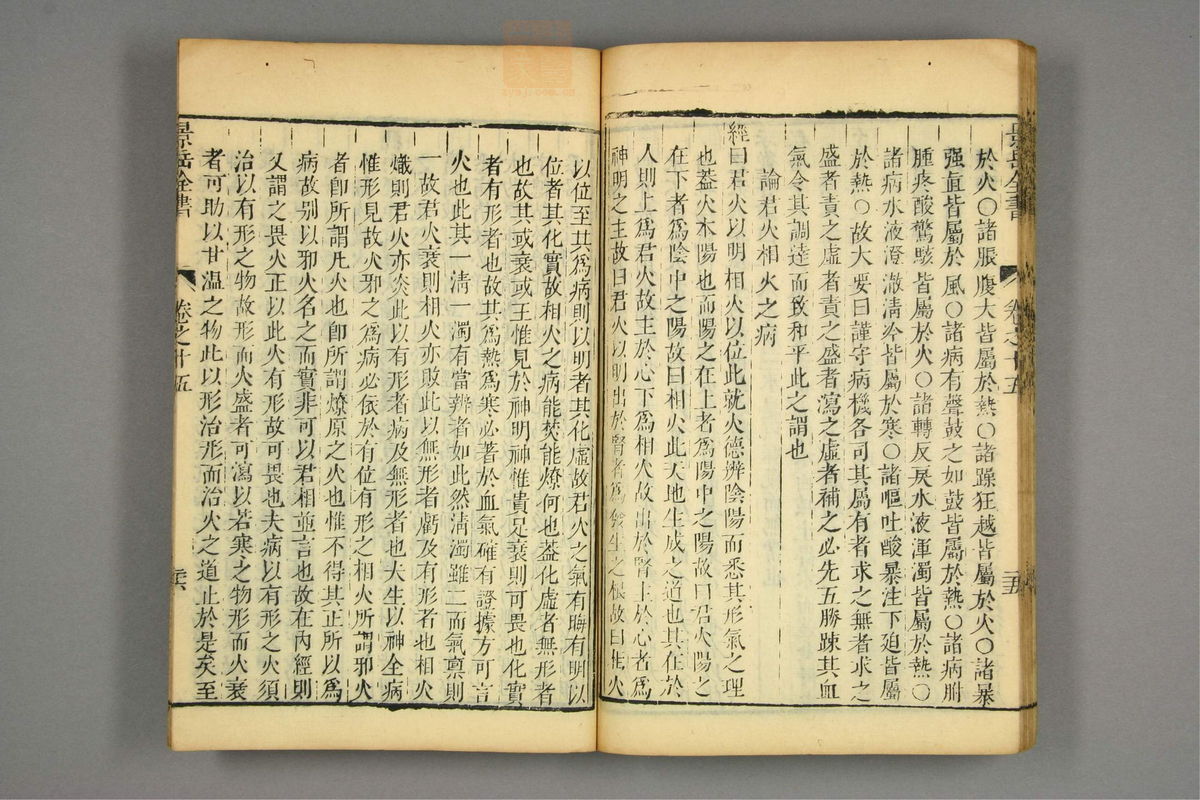 於火○諸脹腹大皆屬於熱○諸躁狂越皆屬於火○諸暴
强直皆屬於風○諸病有聲鼓之如鼓皆屬於熱○諸病胕
腫疼酸驚駭皆屬於火○諸轉反戾水液渾濁皆屬於熱○
諸病水液澄澈淸冷皆屬於寒○諸嘔吐酸暴注下廹皆屬
於熱○故大要曰謹守病機各司其屬有者求之無者求之
盛者責之虛者責之盛者瀉之虛者補之必先五勝踈其血
氣令其調達而致和平此之謂也
論君火相火之病
經曰君火以明相火以位此就火德辨陰陽而悉其形氣之理
也葢火本陽也而陽之在上者爲陽中之陽故曰君火陽之
在下者爲陰中之陽故曰相火此天地生成之道也其在於
人則上爲君火故主於心下爲相火故出於腎主於心者爲
神明之主故曰君火以明出於腎者爲發生之根故曰相火
景岳全書
卷之十五
二五
以位至其爲病則以明者其化虛故君火之氣有晦有明以
位者其化實故相火之病能焚能燎何也葢化虛者無形者
也故其或衰或王惟見於神明神惟貴足衰則可畏也化實
者有形者也故其爲熱爲寒必著於血氣確有證據方可言
火也此其一淸一濁有當辨者如此然淸濁雖二而氣禀則
一故君火衰則相火亦敗此以無形者虧及有形者也相火
熾則君火亦炎此以有形者病及無形者也夫生以神全病
惟形見故火邪之爲病必依於有位有形之相火所謂邪火
者卽所謂凡火也卽所謂燎原之火也惟不得其正所以爲
病故别以邪火名之而實非可以君相並言也故在內經則
又謂之畏火正以此火有形故可畏也夫病以有形之火須
治以有形之物故形而火盛者可瀉以若寒之物形而火衰
者可助以甘温之物此以形治形而治火之道止於是矣至
景岳全書
卷之十五
二六